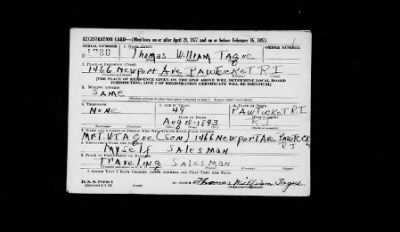 REGISTRATION CARD—(Men born on or after April 28, 1877 and on or before February 16, 1897)
SERIAL NUMBER 1. NAME (Print) ORDER NUMBER
1780 Thomas William Tague
2. PLACE OF RESIDENCE (Print)
1466 Newport Ave PAWTUCKET R I
[THE PLACE OF RESIDENCE GIVEN ON THE LINE ABOVE WILL DETERMINE LOCAL BOARD
JURISDICTION; LINE 2 OF REGISTRATION CERTIFICATE WILL BE IDENTICAL]
3. MAILING ADDRESS
SAME
4. TELEPHONE 5. AGE IN YEARS 6. PLACE OF BIRTH
NONE 49 PAWTUCKET R I
DATE OF BIRTH
Aug 1893 R I
7. NAME AND ADDRESS OF PERSON WHO WILL ALWAYS KNOW YOUR ADDRESS
TAGUE (SON) 1466 NEWPORT AVE PAWTUCKET
R I
8. EMPLOYER'S NAME AND ADDRESS
Myself SALESMAN
9. PLACE OF EMPLOYMENT OR BUSINESS
Traveling SALESMAN
I AFFIRM THAT I HAVE VERIFIED ABOVE ANSWERS AND THAT THEY ARE TRUE.
D. S. S. Form 1
Thomas William Tague